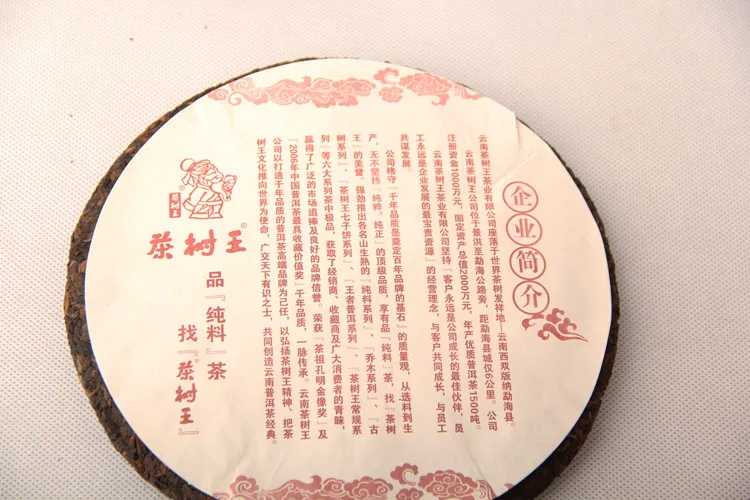 企业简介
云南茶树王茶业有限公司座落于世界茶树发祥地—云南西双版纳勐海县。
云南茶树王公司位于景洪至勐海公路旁，距勐海县城仅6公里。公司
注册资金1000万元，固定资产总值2000万元，年产优质普洱茶1500吨。
云南茶树王茶业有限公司坚持「客户永远是公司成长的最佳伙伴，员
工永远是企业发展的最宝贵资源」的经营理念，与客户共同成长，与员工
共谋发展。
公司恪守「千年品质是奠定百年品牌的基石」的质量观，从选料到生
产，无不坚持「纯粹，纯正」的顶级品质，享有品『纯料』茶，找『茶树
王』的美誉。强劲推出各名山生熟的「纯料系列」、「乔木系列」、「古
树系列」、「茶树王七子饼系列」、「王者普洱系列」、「茶树王常规系
列」等六大系列茶中极品，获取了经销商、收藏商及广大消费者的青睐，
赢得了广泛的市场追捧及良好的品牌信誉。荣获「茶祖孔明金像奖」及
「2006年中国普洱茶最具收藏价值奖」千年品质，一脉传承。云南茶树王
公司以打造千年品质的普洱茶高端品牌为己任，以弘扬茶树王精神、把茶
树王文化推向世界为使命，广交天下有识之士，共同创造云南普洱茶经典。
茶树王
茶树王
品『纯料』茶
找『茶树王』